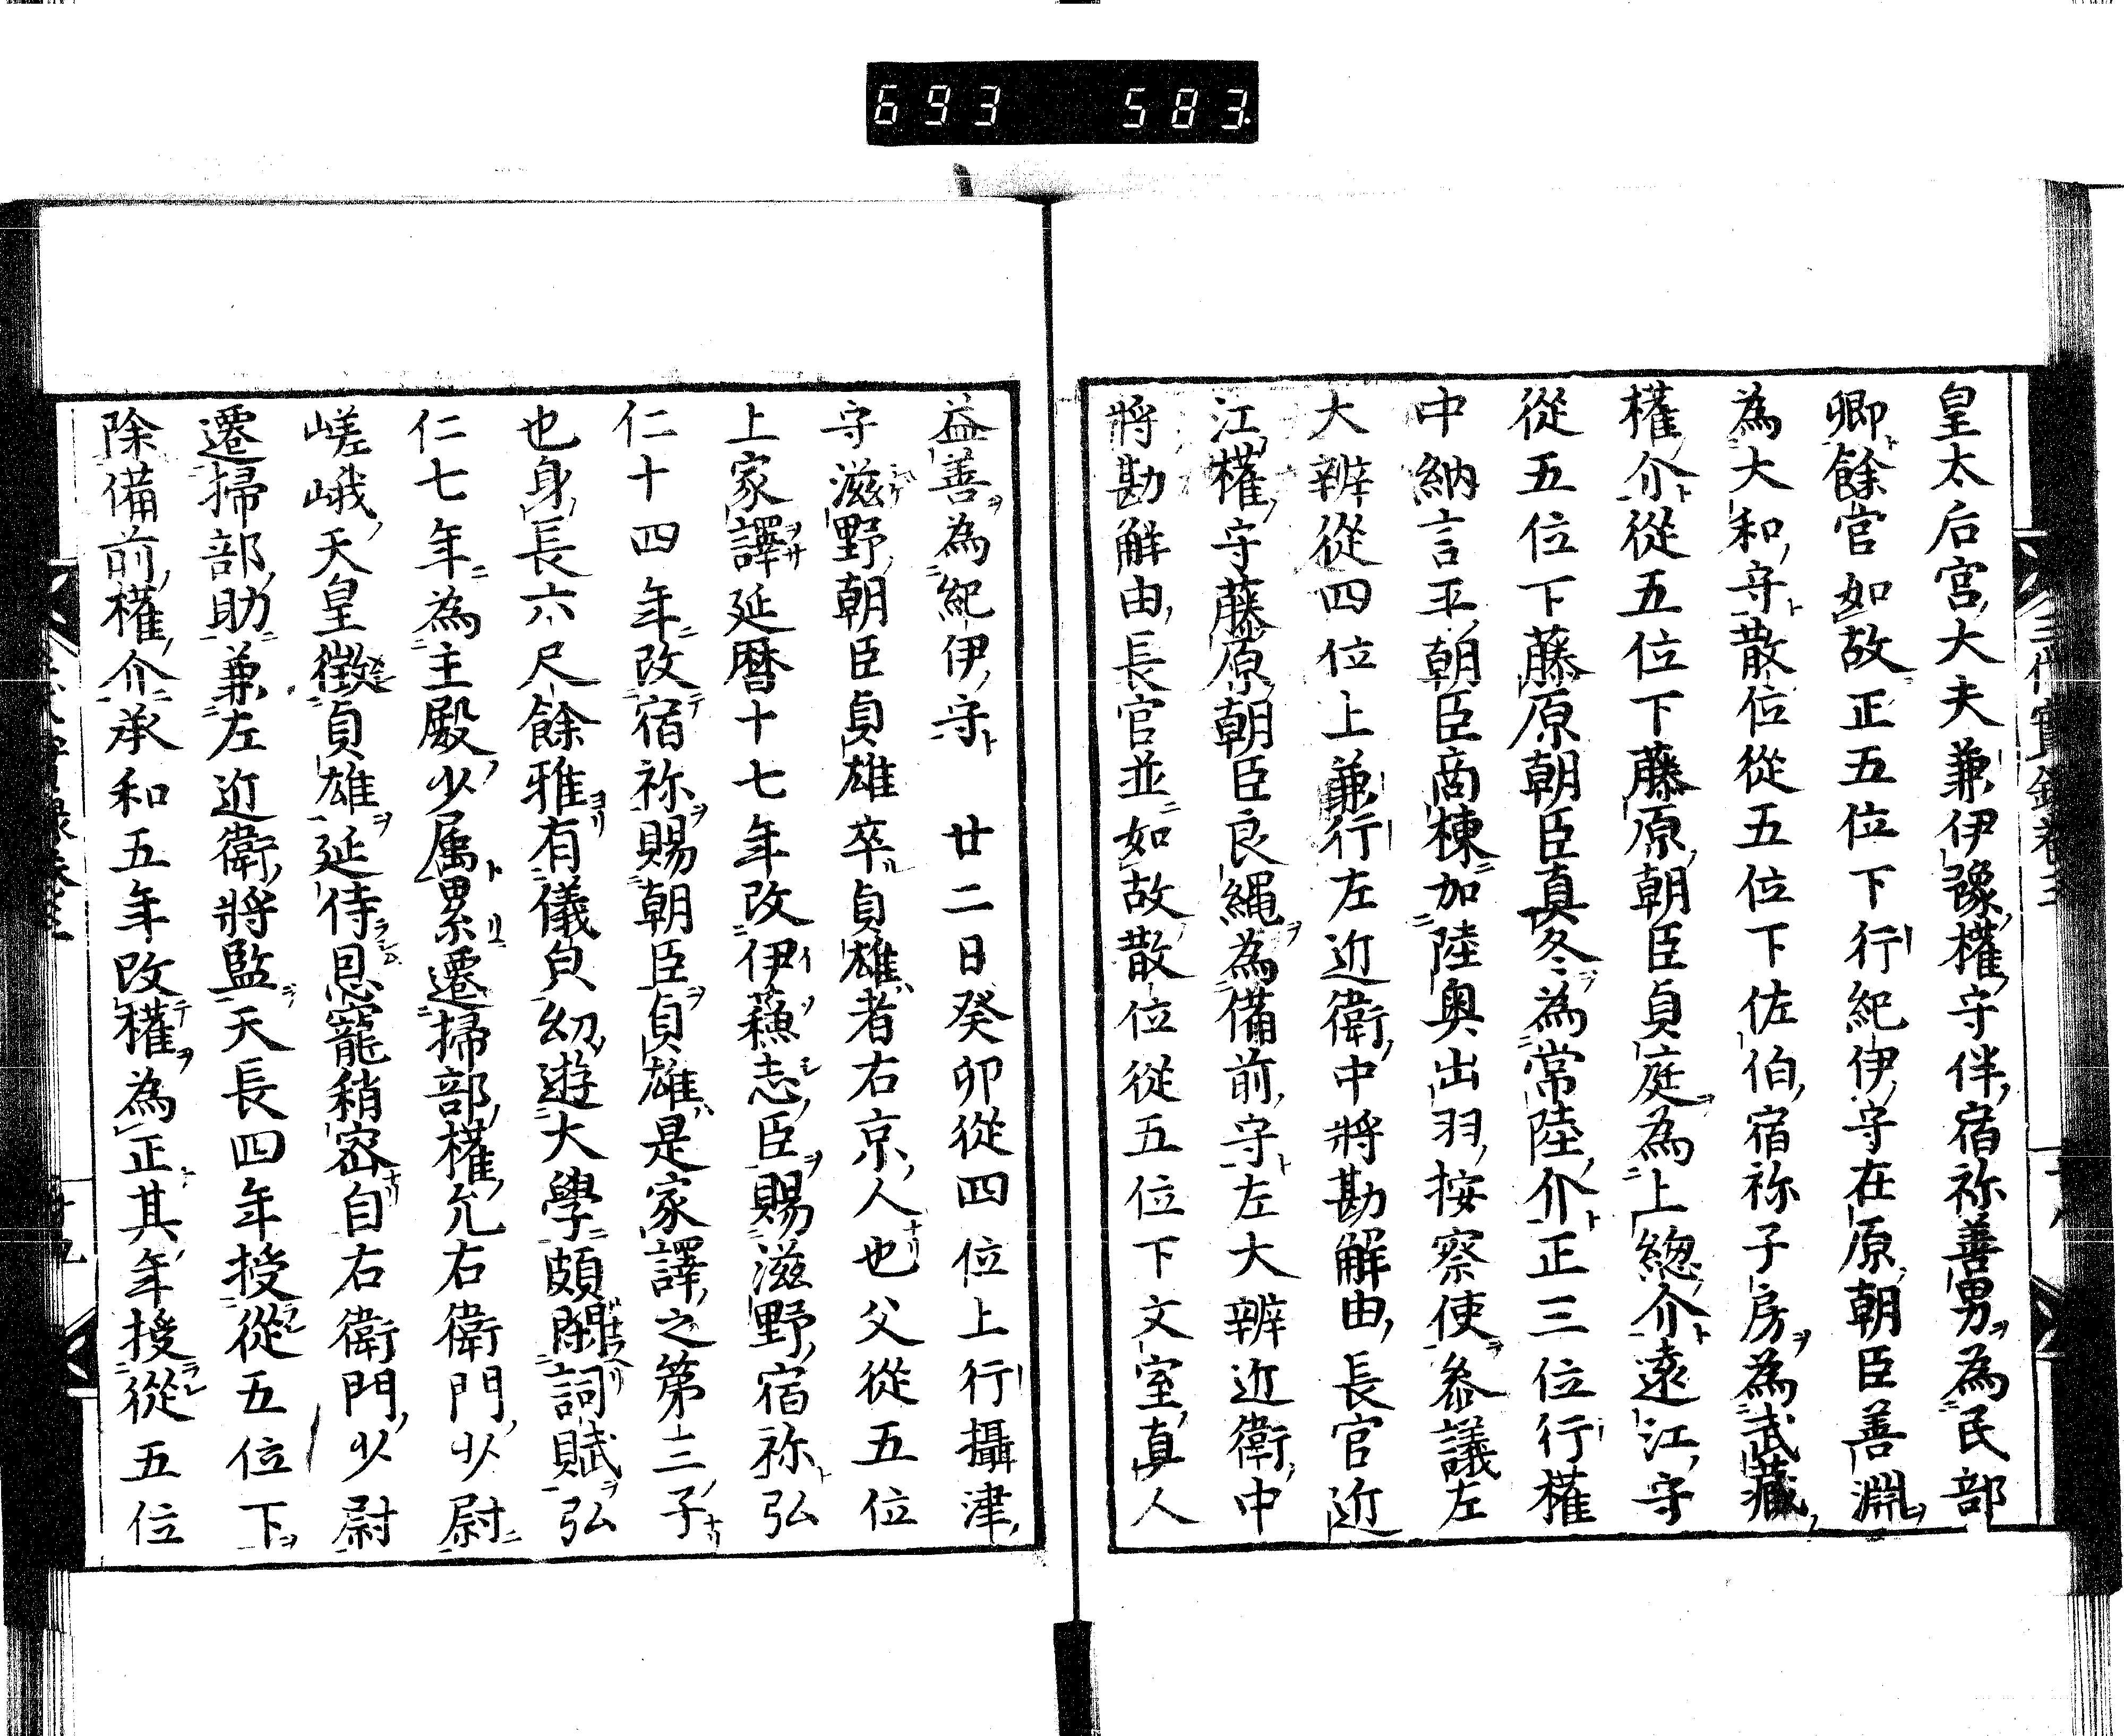 693 583
皇太后宮大夫兼伊豫權守伴宿祢善男為民部
卿餘官如故正五位下行紀伊守在原朝臣善淵
為大和守散位從五位下佐伯宿祢子房為武藏
權介從五位下藤原朝臣貞庭為上總介遠江守
從五位下藤原朝臣真冬為常陸介正三位行權
中納言平朝臣商棟加陸奥出羽按察使叅議左
大辨從四位上兼行左近衛中將勘解由長官近
江權守藤原朝臣良繩為備前守左大辨近衛中
將勘解由長官並如故散位從五位下文室真人
益善為紀伊守 廿二日癸卯從四位上行攝津
守滋野朝臣貞雄卒貞雄者右京人也父從五位
上家譯延暦十七年改伊蘓志臣賜滋野宿祢弘
仁十四年改宿祢賜朝臣貞雄是家譯之第三子
也身長六尺餘雅有儀皃幼遊大學頗閑詞賦弘
仁七年為主殿少属累遷掃部權允右衛門少尉
嵯峨天皇徴貞雄延侍恩寵稍密自右衛門少尉
遷掃部助兼左近衛將監天長四年授從五位下
除備前權介承和五年改權為正其年授從五位